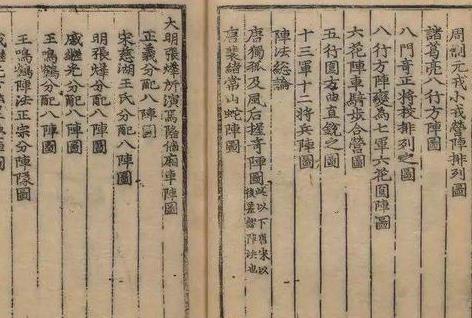 周制元戎小戎營陣排列圖
諸葛亮八行方陣圖
八門奇正將校排列之圖
八行方陣變爲七軍六花圓陣圖
六花陣車騎步合營圖
五行圓方曲直銳之圖
十三軍十二將兵陣圖
陣法總論
唐獨孤及風后握奇陣圖
唐裴緒常山蛇陣圖
大明張燁所演萬陰偏廂車陣圖
正義分配八陣圖
宋慈湖王氏分配八陣圖
明張燁分配八陣圖
戚繼光分配八陣圖
王鳴鶴分配八陣圖
王鳴鶴陣法正宗分陣隊圖